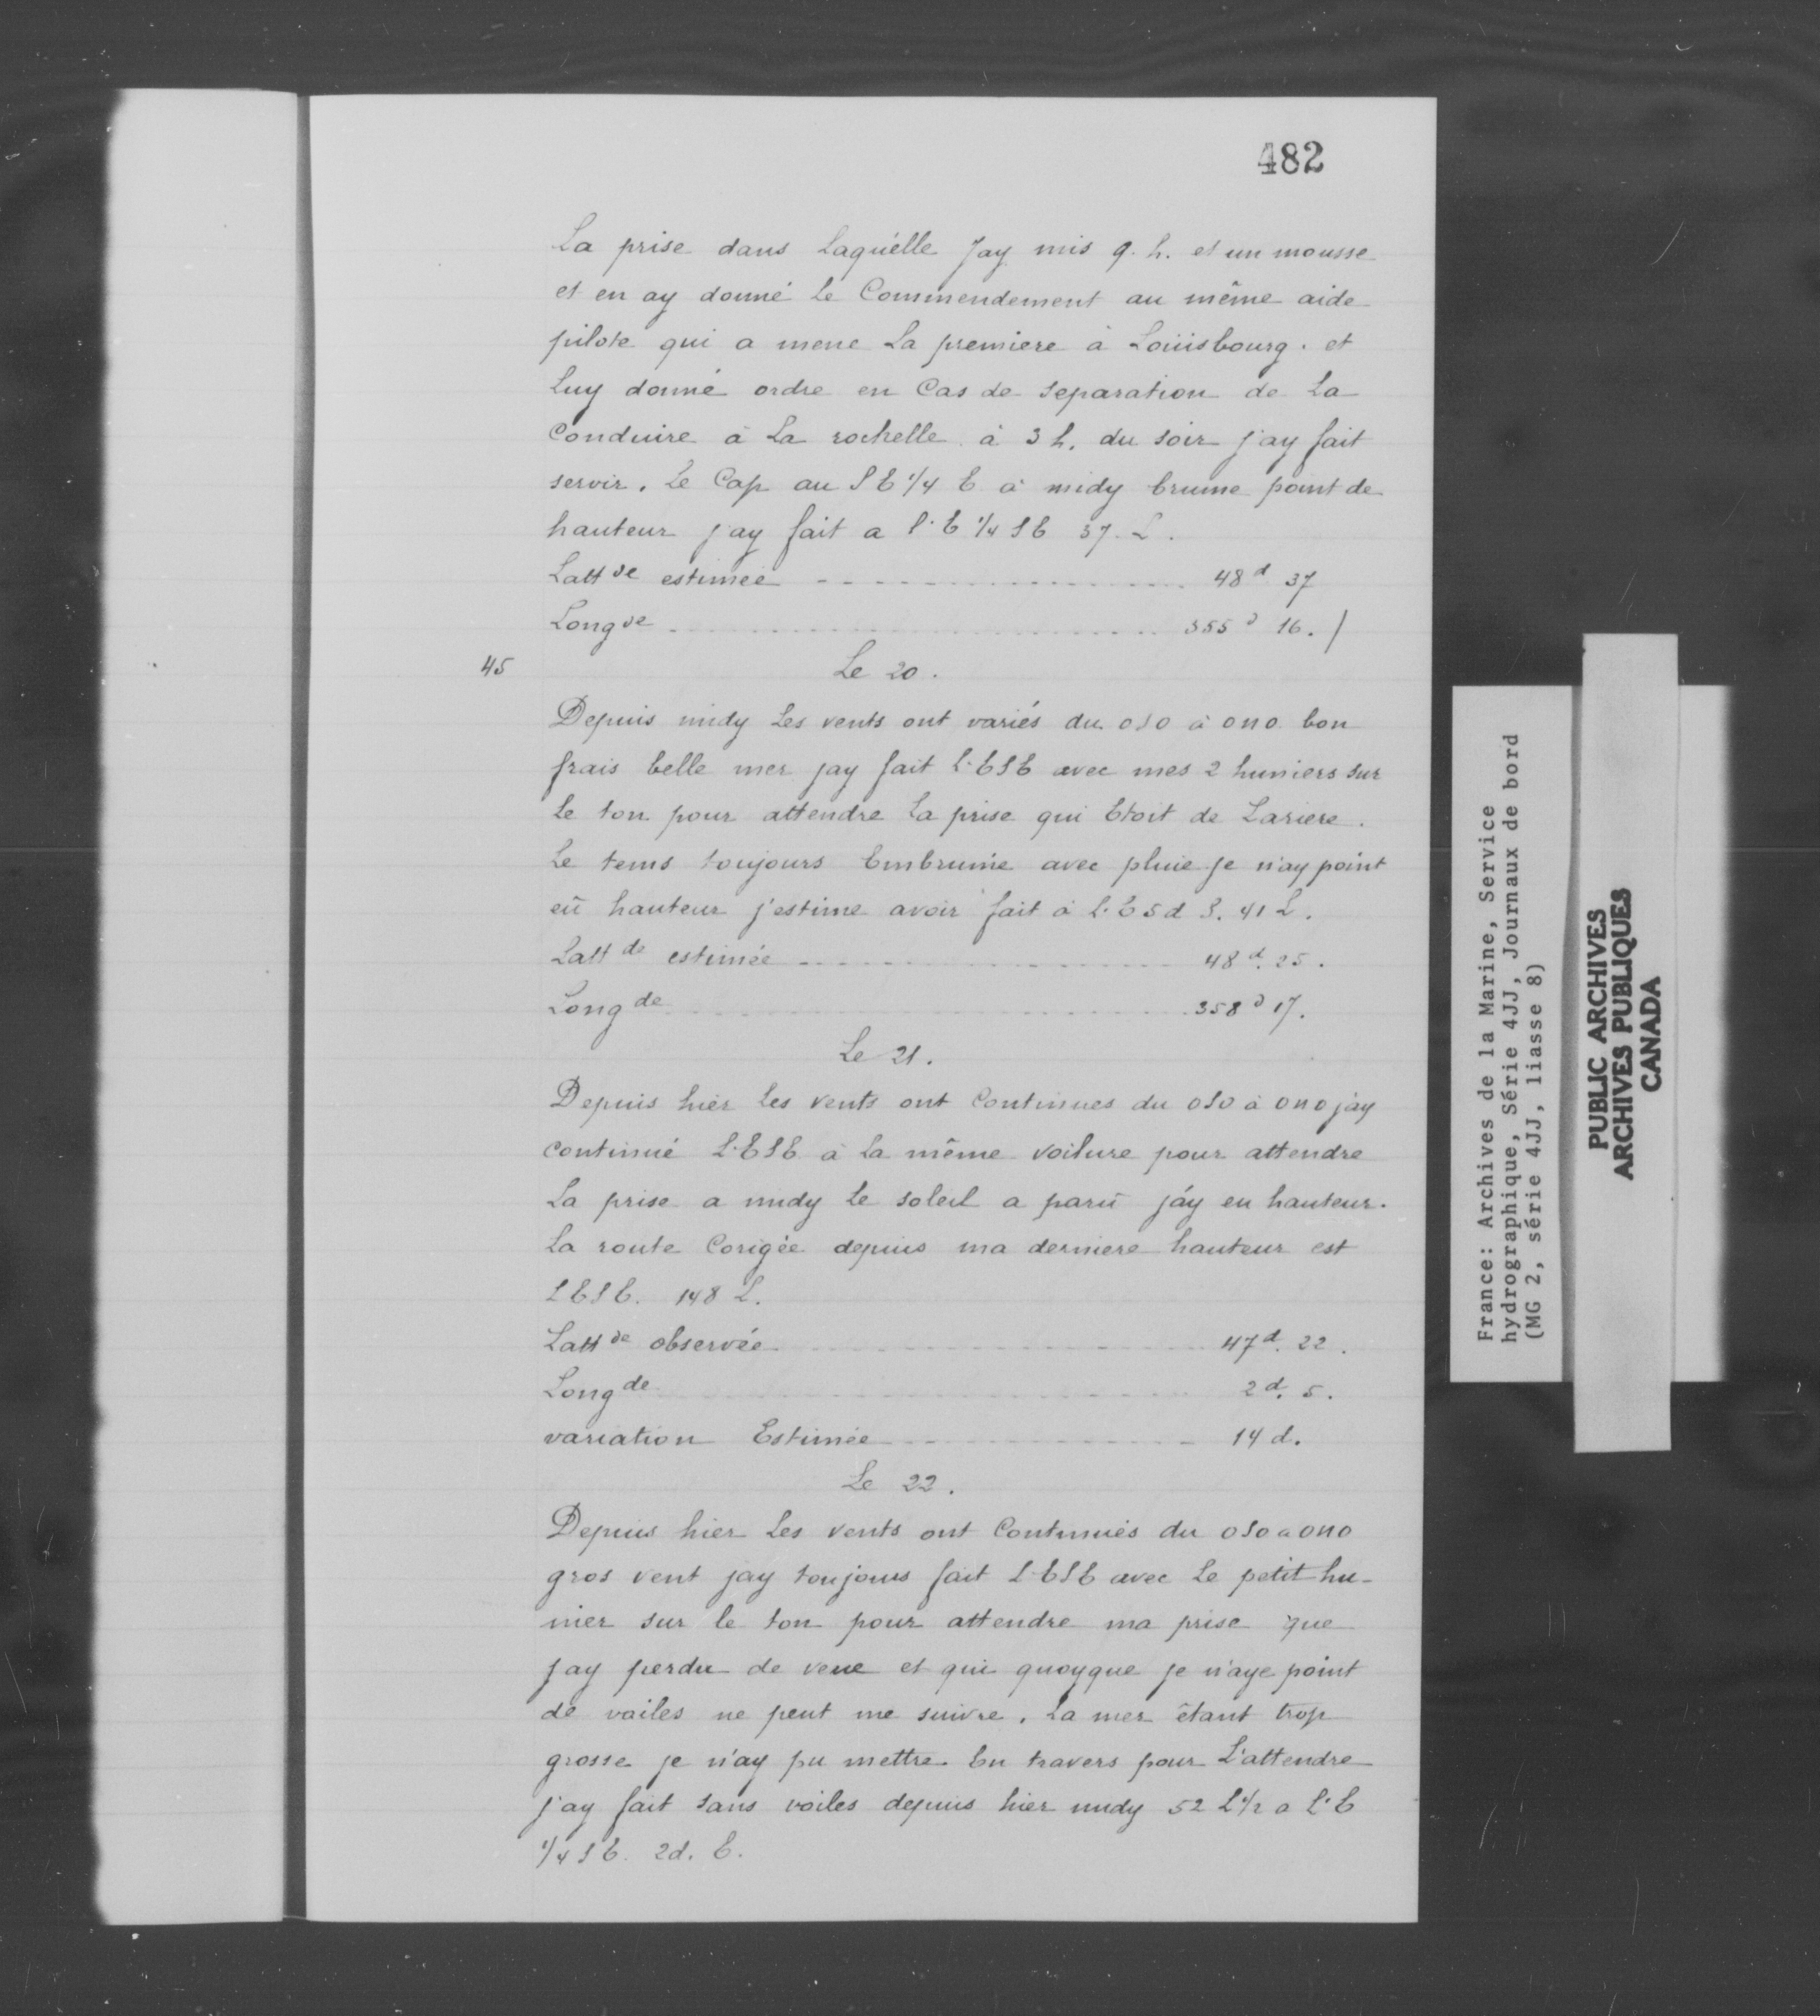 482
La prise dans Laquélle Jay mis 9. h. et un mousse
et en ay donné Le Commendement au même aide
pilote qui a mene La premiere à Loüisbourg. et
Luy donné ordre en Cas de separation de La
Conduire à La rochelle à 3 h. du soir j'ay fait
servir. Le Cap au SE 1/4 E à midy brume point de
hauteur j'ay fait a l'E 1/4 SE 37. L.
Lattde estimée 48d 37
Longde 355d 16. /
45 Le 20.
Depuis midy Les vents ont variés du oso à ono bon
frais belle mer jay fait L'ESE avec mes 2 huniers sur
Le ton pour attendre La prise qui Etoit de Lariere.
Le tems toujours Embrumé avec pluie je n'ay point
eü hauteur j'estime avoir fait à L'E 5d S. 41 L.
Lattde estimée 48d. 25.
Longde 358d 17.
Le 21.
Depuis hier Les vents ont Continues du oso à ono j'ay
continué L'ESE à La même voilure pour attendre
La prise a midy Le soleil a parü j'ay eu hauteur.
La route Corigée depuis ma derniere hauteur est
LESE. 148 L.
Lattde observée 47d. 22.
Longde 2d. 5.
variation Estimée 14 d.
Le 22.
Depuis hier Les vents ont Continués du oso a ono
gros vent jay toujours fait L'ESE avec Le petit hu-
nier sur le ton pour attendre ma prise que
Jay perdu de veue et qui quoyque je n'aye point
de voiles ne peut me suivre. La mer êtant trop
grosse je n'ay pu mettre En travers pour L'attendre
j'ay fait sans voiles depuis hier midy 52 L 1/2 a l'E
1/4 SE. 2d. E.
France: Archives de la Marine, Service
hydrographique, Série 4JJ, Journaux de bord
(MG 2, série 4JJ, liasse 8)
PUBLIC ARCHIVES
ARCHIVES PUBLIQUES
CANADA